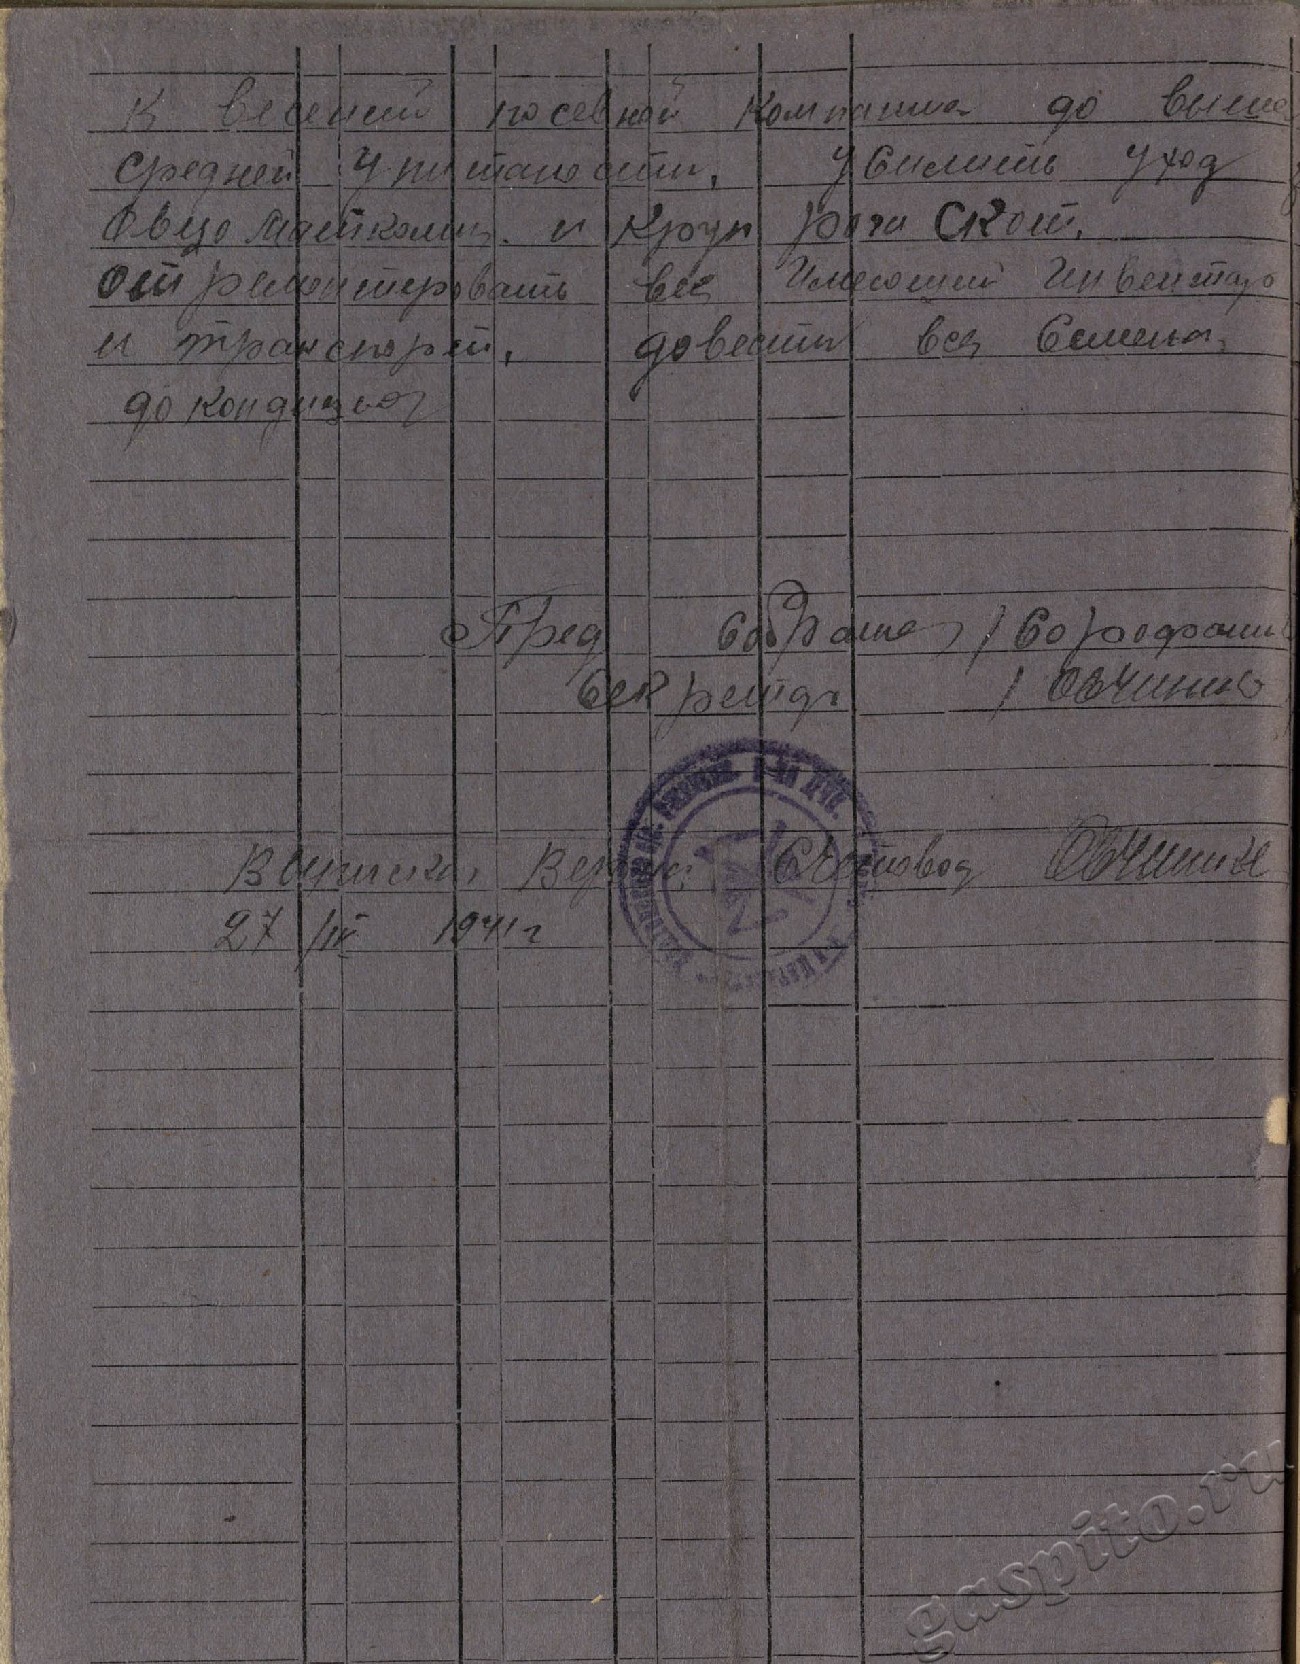 К весений посевной Компании до выше
средней упитаности, усилить уход
Овцо матками и Круп рога Скот.
отремонтировать вся Имеющий Инвентарь
и транспорт, довести вся Семена
до кондицыи
Пред Собрания / 
Секретарь / Овчинни
Выписка Верна: Счетовод Овчинни
27/III 1941 г
gaspito.ru